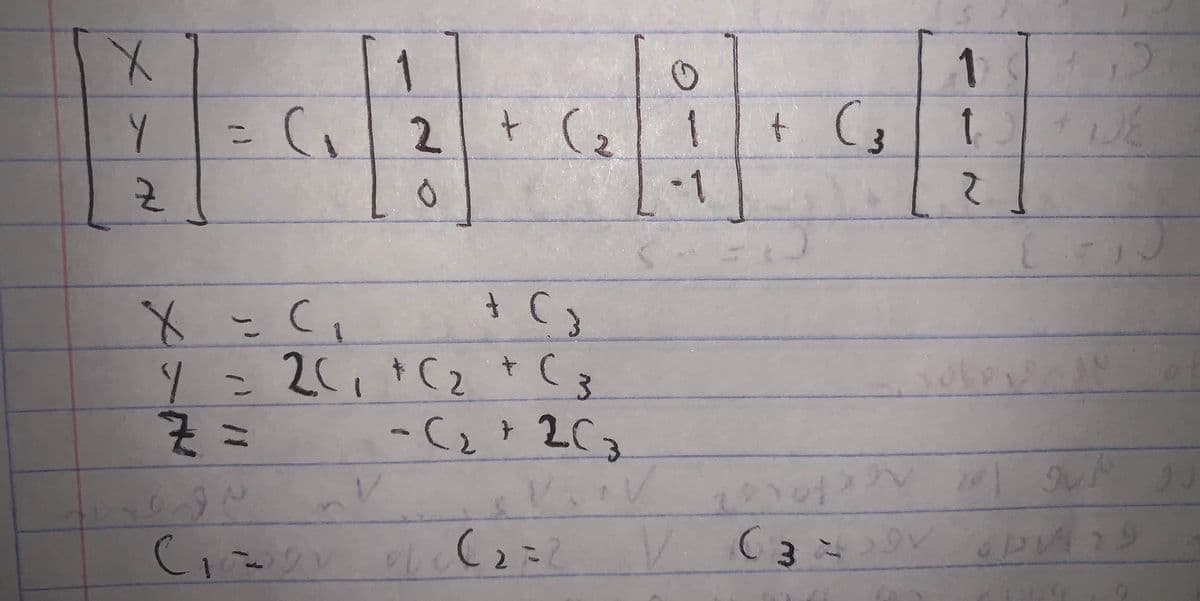 [X Y Z] = C1 [1 2 0] + C2 [0 1 -1] + C3 [1 1 2]
X = C1 + C3
Y = 2C1 + C2 + C3
Z = -C2 + 2C3
C1= C2= C3=